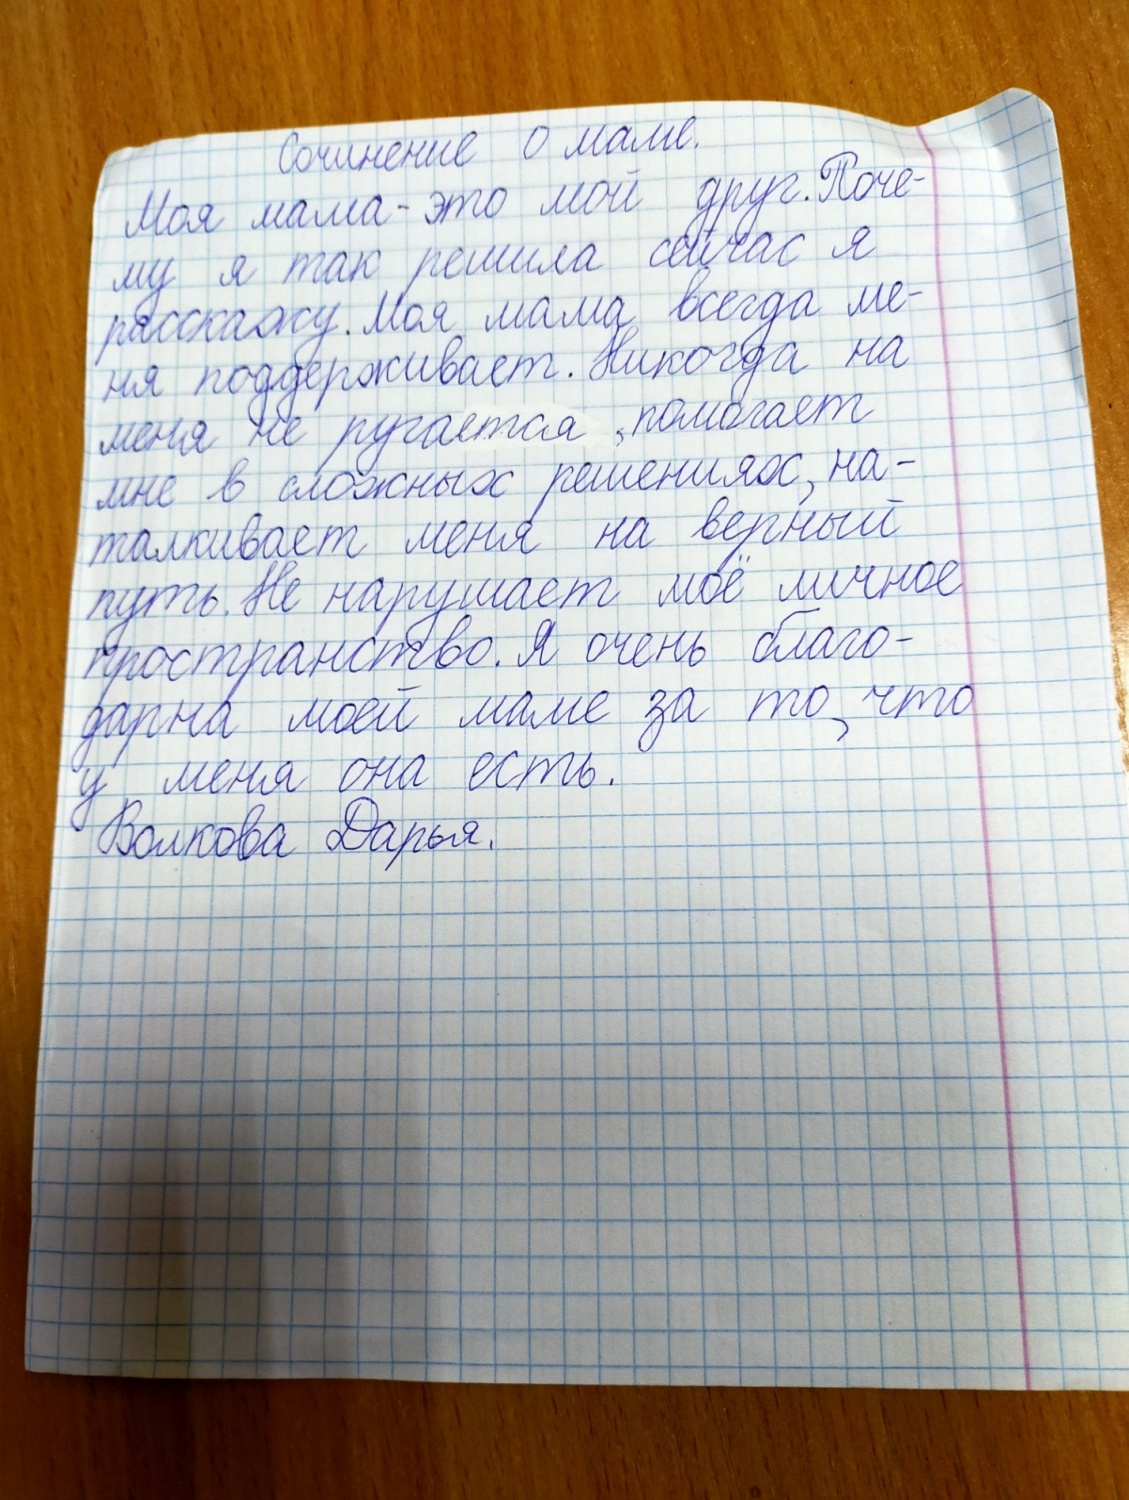 Сочинение о маме.
Моя мама - это мой друг. Поче-
му я так решила сейчас я
расскажу. Моя мама всегда ме-
ня поддерживает. Никогда на
меня не ругается, помогает
мне в сложных решениях, на-
талкивает меня на верный
путь. Не нарушает моё личное
пространство. Я очень благо-
дарна моей маме за то, что
у меня она есть.
Волкова Дарья.